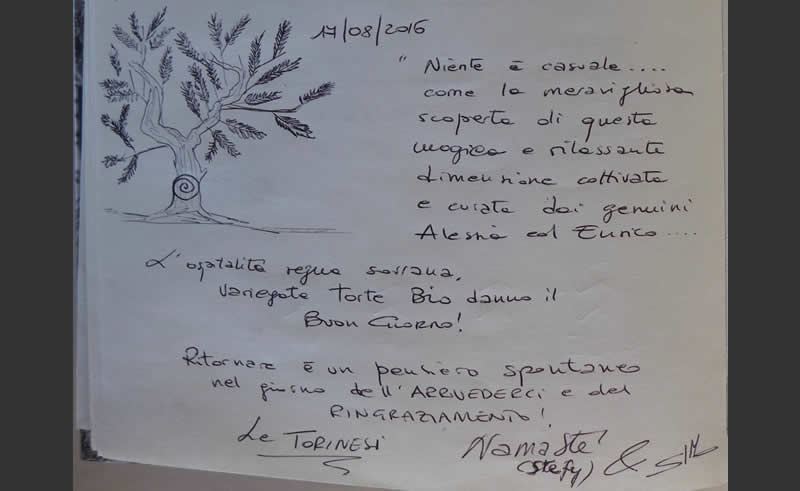 17/08/2016
" Niente è casuale....
come la meravigliosa
scoperta di questa
magica e rilassante
dimensione coltivata
e curata dai genuini
ed Enrico....
L'ospitalità regna sovrana,
variegate torte Bio danno il
Buon Giorno!
Ritornare è un pensiero spontaneo
nel giorno dell'ARRIVEDERCI e del
RINGRAZIAMENTO!
Le TORINESI
Namastè
(Stefy) &